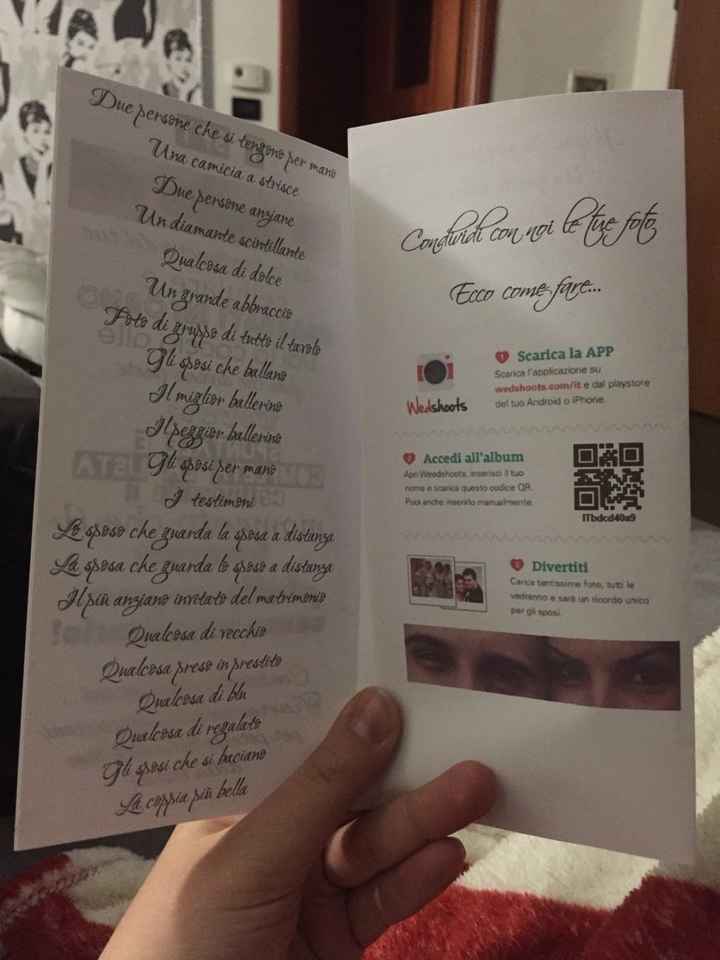 Due persone che si tengono per mano
Una camicia a strisce
Due persone anziane
Un diamante scintillante
Qualcosa di dolce
Un grande abbraccio
Foto di gruppo di tutto il tavolo
Gli sposi che ballano
Il miglior ballerino
Il peggior ballerino
Gli sposi per mano
I testimoni
Lo sposo che guarda la sposa a distanza
La sposa che guarda lo sposo a distanza
Il più anziano invitato del matrimonio
Qualcosa di vecchio
Qualcosa preso in prestito
Qualcosa di blu
Qualcosa di regalato
Gli sposi che si baciano
La coppia più bella
Condividi con noi le tue foto
Ecco come fare...
Wedshoots
1 Scarica la APP
Scarica l'applicazione su
wedshoots.com/it e dal playstore
del tuo Android o iPhone.
2 Accedi all'album
Apri Weedshoots, inserisci il tuo
nome e scarica questo codice QR.
Puoi anche inserirlo manualmente.
ITbdcd40a9
3 Divertiti
Carica tantissime foto, tutti le
vedranno e sarà un ricordo unico
per gli sposi.